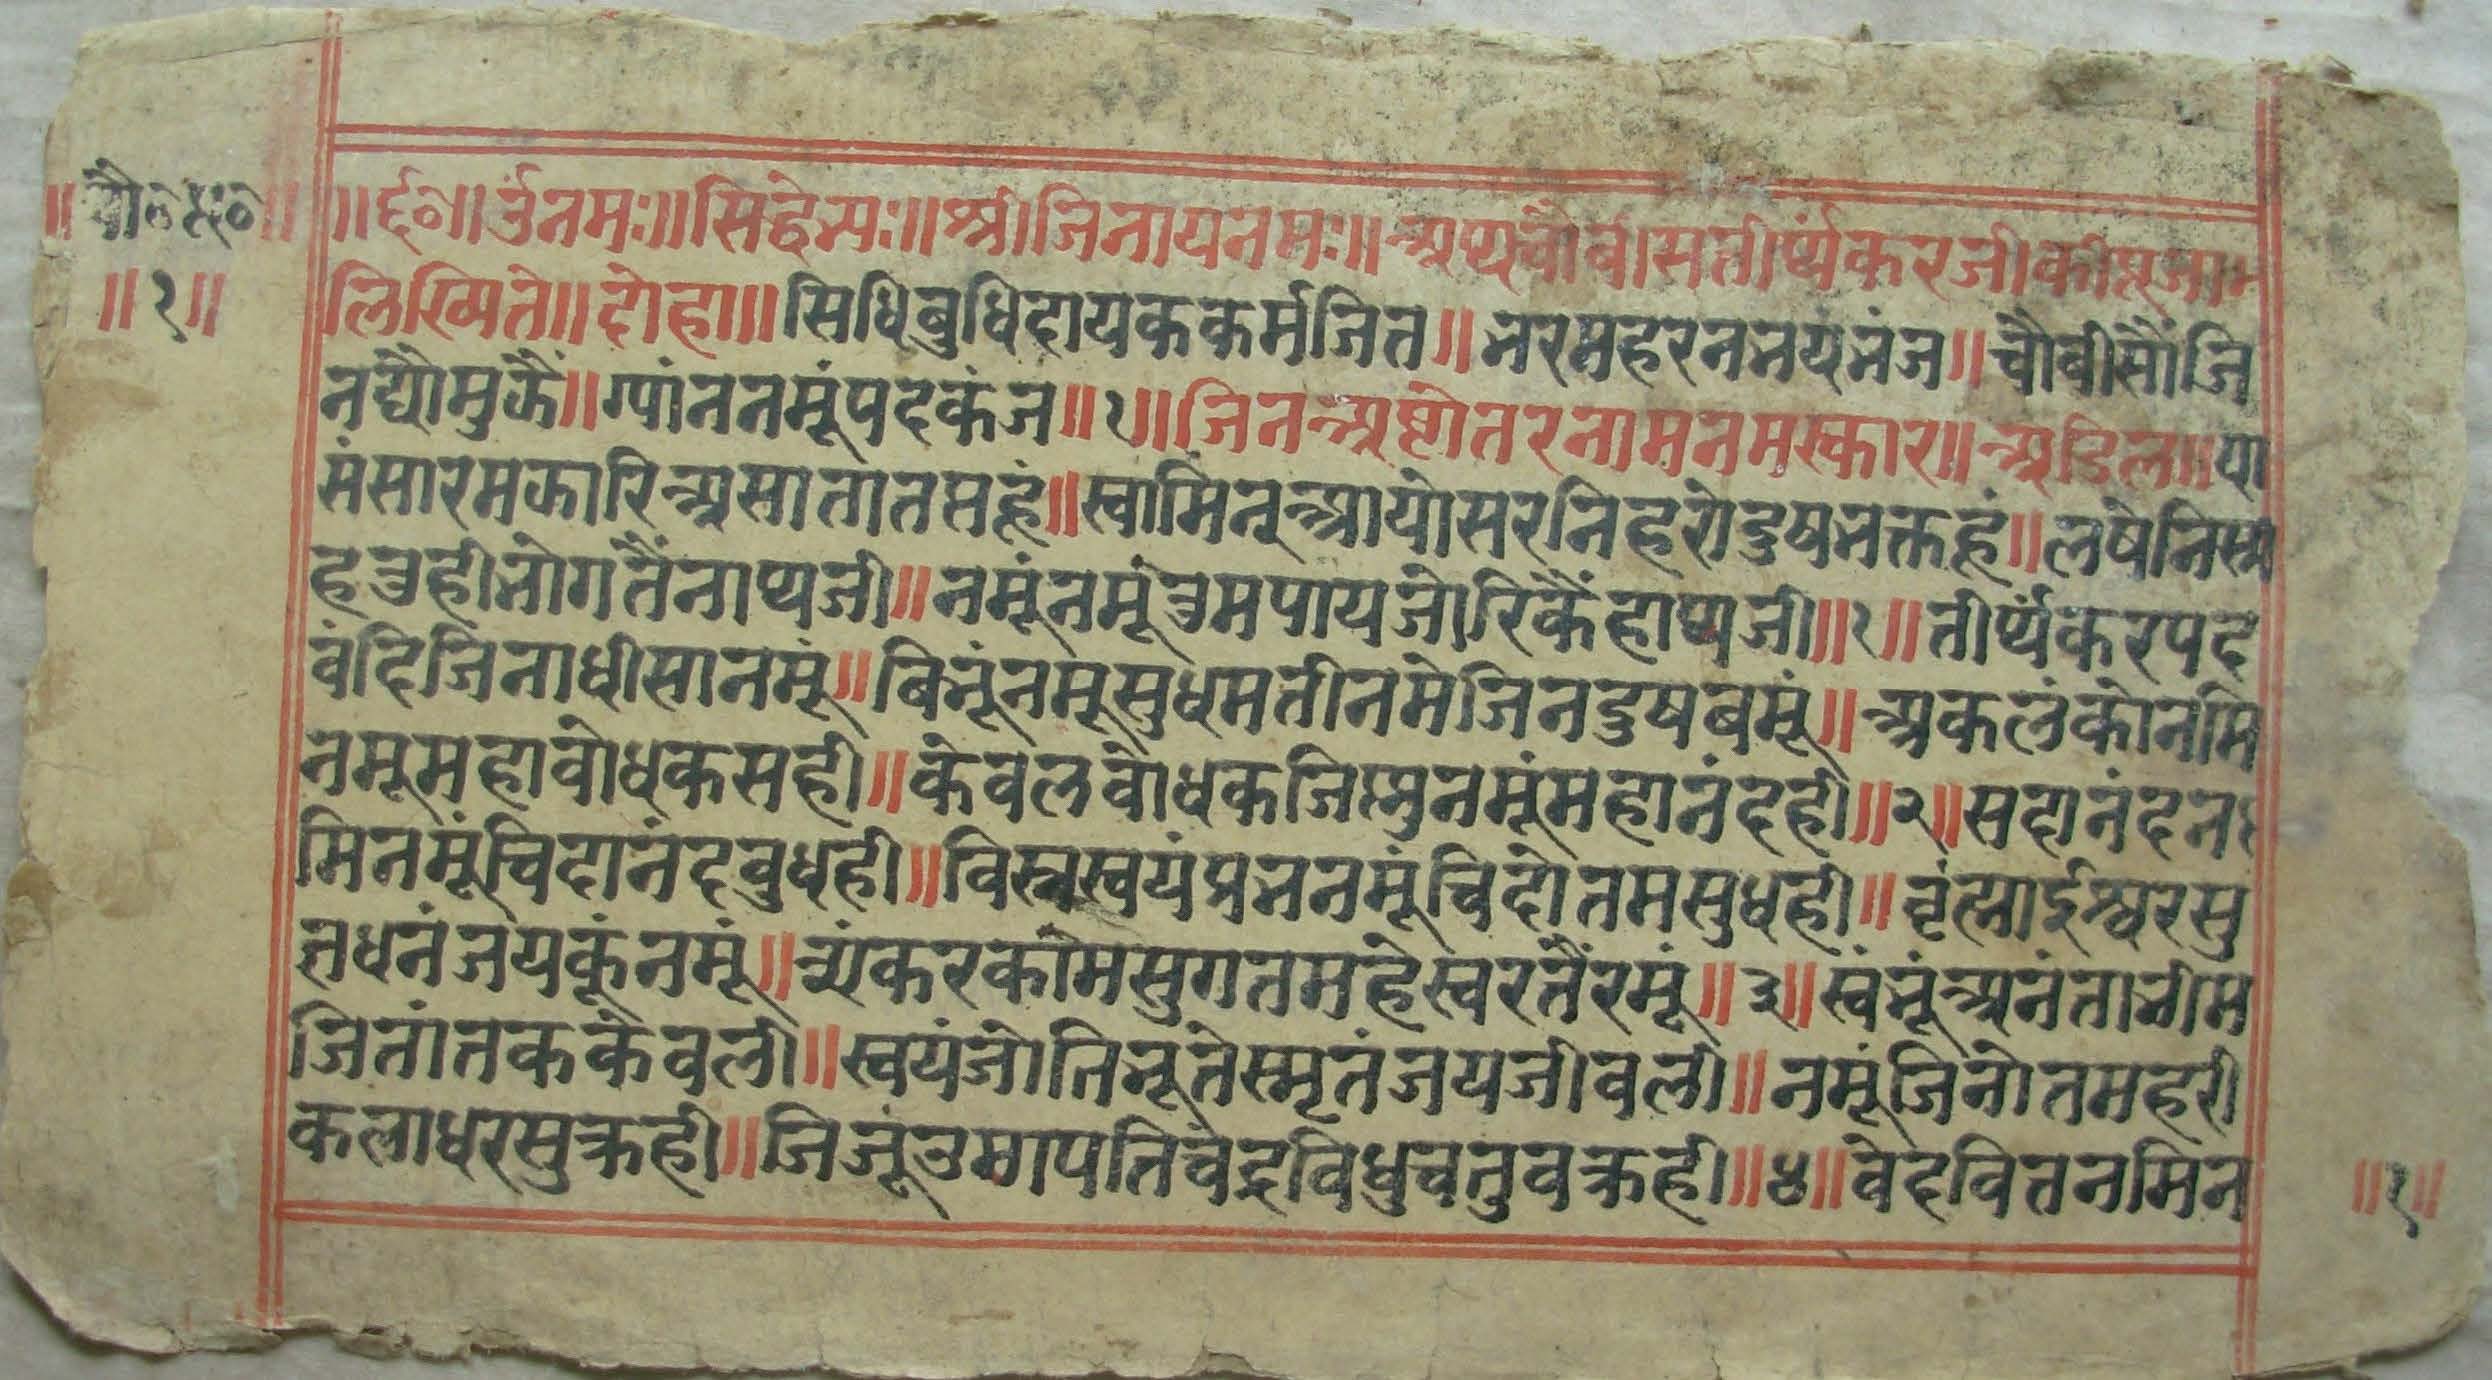 ॥ चौ० पू० ॥
॥ १ ॥
॥ ई० ॥ र्उनमः ॥ सिद्धेभ्यः ॥ श्री जिनाय नमः ॥ अथ चौबीस तीर्थंकर जी की पूजा
लिख्यिते ॥ दोहा ॥ सिधि बुधि दायक कर्मजित ॥ भरमहरन भयभंज ॥ चौबीसौं जि
न द्यौ मुकै ॥ ग्यांन नमूं पदकंज ॥ १ ॥ जिन अष्टोतर नाम नमस्कार ॥ अडिल ॥ या
संसार मकारि असाता तप्त हूं ॥ स्वामिन् आयो सरनि हरो दुष भक्त हूं ॥ लषे निस्प्री
ह उही भोगतैं नाथ जी ॥ नमूं नमूं उम पाय जोरिकैं हाथ जी ॥ १ ॥ तीर्थंकर पद
वंदि जिनाधीसा नमूं ॥ बिभूं नमू सुधमती नमे जिन दुष बमूं ॥ अकलंको नमि
नमू महाबोधक सही ॥ केवल बोधक जिष्णु नमूं महानंद ही ॥ २ ॥ सदानंद न
मि नमूं चिदानंद बुध ही ॥ विस्न स्वयंप्रभ नमूं चिदोतम सुध ही ॥ वृंह्मा ईश्वर सु
त धनंजय कूं नमूं ॥ संकर काम सुगत महेस्वर तैं रमूं ॥ ३ ॥ स्वंभूं अनंता भीम
जितांतक केवली ॥ स्वयंजोति भूतेस्मृतंजय जी वली ॥ नमूं जिनोतम हरी
कलाधर सुक्र ही ॥ जिजूं उमापति चंद्र विधु चतुवक्र ही ॥ ४ ॥ वेदवित नमि न
॥ १ ॥